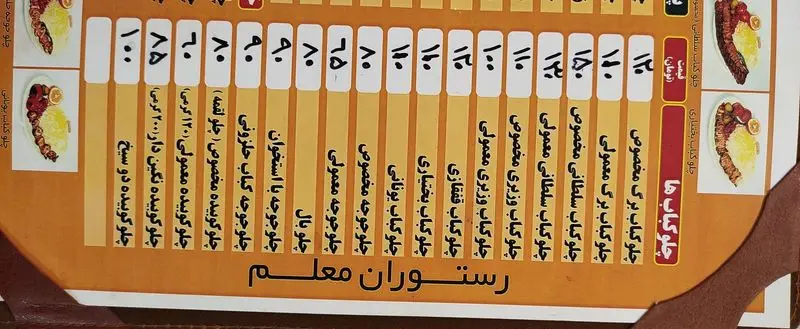 چلو کباب ها قیمت (تومان)
چلو کباب برگ مخصوص ۱۲۰
چلو کباب برگ معمولی ۱۱۰
چلو کباب سلطانی مخصوص ۱۵۰
چلو کباب سلطانی معمولی ۱۳۰
چلو کباب وزیری مخصوص ۱۱۰
چلو کباب وزیری معمولی ۱۰۰
چلو کباب قفقازی ۱۲۰
چلو کباب بختیاری ۱۱۰
چلو کباب یونانی ۱۱۰
چلو جوجه مخصوص ۸۰
چلو جوجه معمولی ۶۵
چلو بال ۸۰
چلو جوجه با استخوان ۹۰
چلو جوجه کباب حلزونی ۹۰
چلو کوبیده مخصوص (چلو لقمه) ۸۰
چلو کوبیده معمولی (۱۲۰ گرمی) ۶۰
چلو کوبیده نگین دار (۲۰۰ گرمی) ۸۵
چلو کوبیده دو سیخ ۱۰۰
رستوران معلم
چلو کباب سلطانی
چلو کباب بختیاری
چلو جوجه
چلو کباب یونانی